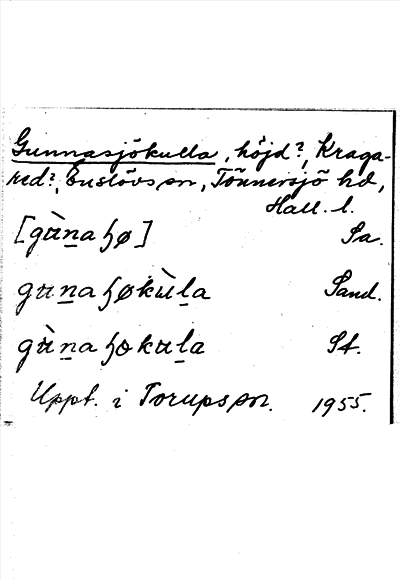 Gunnasjökulla, höjd?, Kraga-
red?, Enslövs sn, Tönnersjö hd,
Hall. l.
[gù̠na ɧø] Sa.
gu̠na ɧøkùl̠a Sand.
gù̠na ɧøkul̠a St.
Uppt. i Torups sn. 1955.